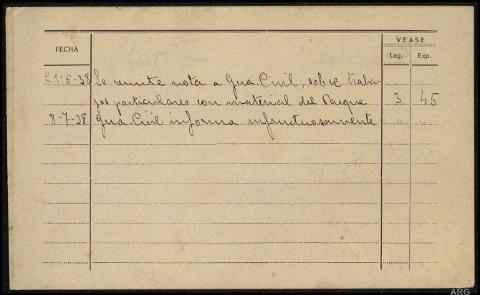 VEASE
FECHA Leg. Exp.
21-6-38 Se remite nota a Gua. Civil, sobre traba-
jos particulares con material del Parque 3 45
8-7-38 Gua. Civil informa infructuosamente " "
ARG